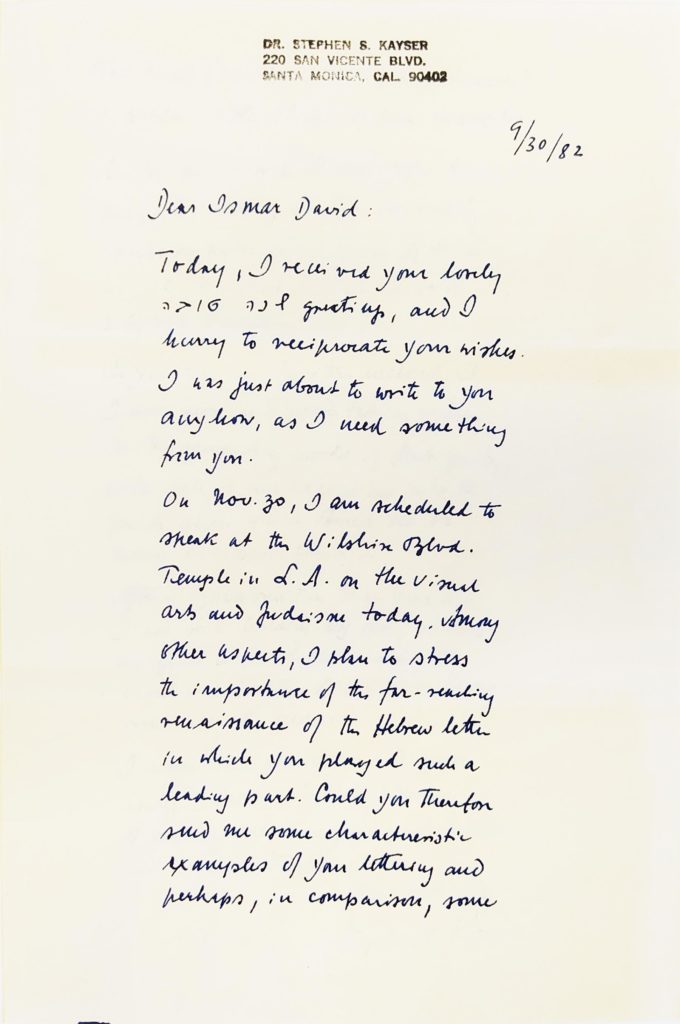 DR. STEPHEN S. KAYSER
220 SAN VICENTE BLVD.
SANTA MONICA, CAL. 90402
9/30/82
Dear Ismar David:
Today, I received your lovely
שנה טובה greetings, and I
hurry to reciprocate your wishes.
I was just about to write to you
anyhow, as I need something
from you.
On Nov. 30, I am scheduled to
speak at the Wilshire Blvd.
Temple in L.A. on the visual
arts and Judaism today. Among
other aspects, I plan to stress
the importance of the far-reaching
renaissance of the Hebrew letter
in which you played such a
leading part. Could you therefore
send me some characteristic
examples of your lettering and
perhaps, in comparison, some